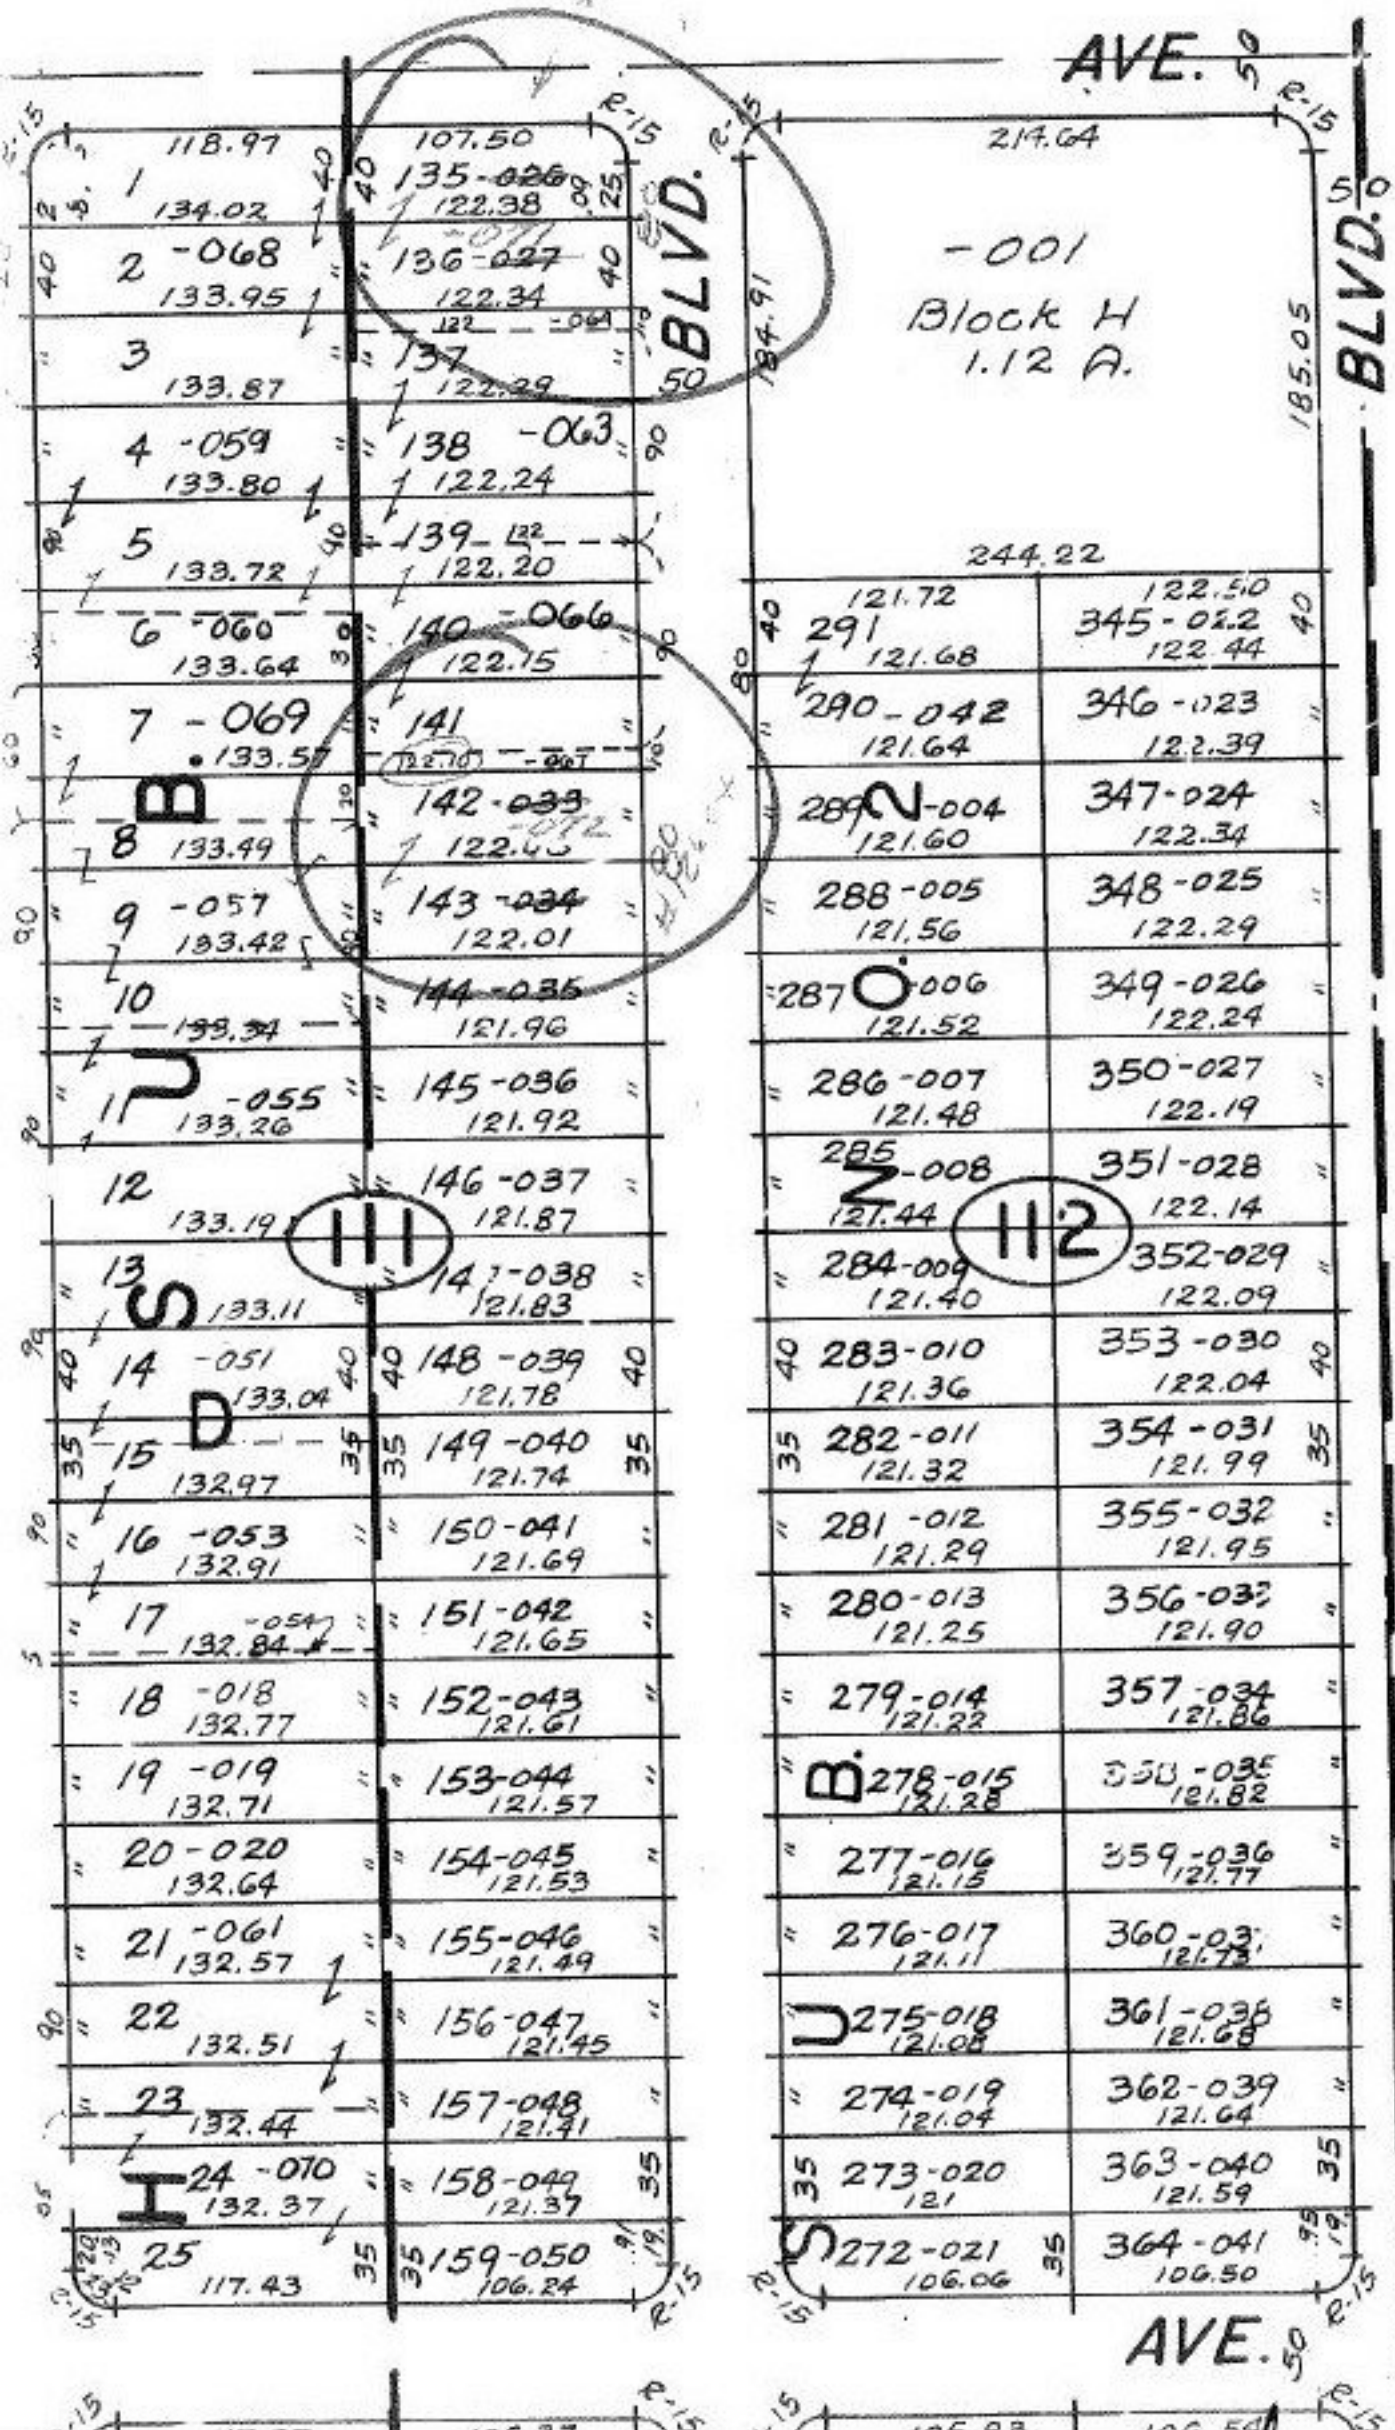 AVE. 50
R-15
118.97
1
134.02
40
2 -068
133.95
40
3
133.87
4 -059
133.80
5
133.72
90
40
6 -060
133.64
30
7 -069
133.57
60
20
8 133.49
9 -057
133.42
90
10
133.34
11 -055
133.26
90
12
133.19
13
133.11
90
40
14 -051
133.04
40
35
15
132.97
35
90
16 -053
132.91
17 -054
132.84
5
18 -018
132.77
19 -019
132.71
20-020
132.64
21 -061
132.57
22
132.51
90
23
132.44
24 -070
132.37
25
117.43
35
R-15
H
D
S
U
B.
111
107.50
R-15
40
135-026
122.38
.09
25
-071
136-027
122.34
40
122 -064
137
122.29
50
138 -063
122.24
90
139 122
122.20
140 -066
122.15
90
141
122.10 -067
142-033
-072
122.06
80
143-034
122.01
144-035
121.96
145-036
121.92
146-037
121.87
147-038
121.83
40
148-039
121.78
40
35
149-040
121.74
35
150-041
121.69
151-042
121.65
152-043
121.61
153-044
121.57
154-045
121.53
155-046
121.49
156-047
121.45
157-048
121.41
158-049
121.37
35
35
159-050
106.24
.91
19.
R-15
BLVD.
50
BLVD.
R-15
214.64
R-15
-001
Block H
1.12 A.
184.91
185.05
244.22
121.72
40
291
121.68
80
290-042
121.64
289-004
121.60
288-005
121.56
287-006
121.52
286-007
121.48
285-008
121.44
284-009
121.40
40
283-010
121.36
35
282-011
121.32
281-012
121.29
280-013
121.25
279-014
121.22
278-015
121.28
277-016
121.15
276-017
121.11
275-018
121.08
274-019
121.04
35
273-020
121
272-021
106.06
35
R-15
S
U
B.
N
O.
2
112
122.50
345-022
122.44
40
346-023
122.39
347-024
122.34
348-025
122.29
349-026
122.24
350-027
122.19
351-028
122.14
352-029
122.09
353-030
122.04
40
354-031
121.99
35
355-032
121.95
356-033
121.90
357-034
121.86
358-035
121.82
359-036
121.77
360-03
121.73
361-038
121.68
362-039
121.64
363-040
121.59
35
364-041
106.50
.95
19.
R-15
AVE. 50
R-15
R-15
R-15
R-15